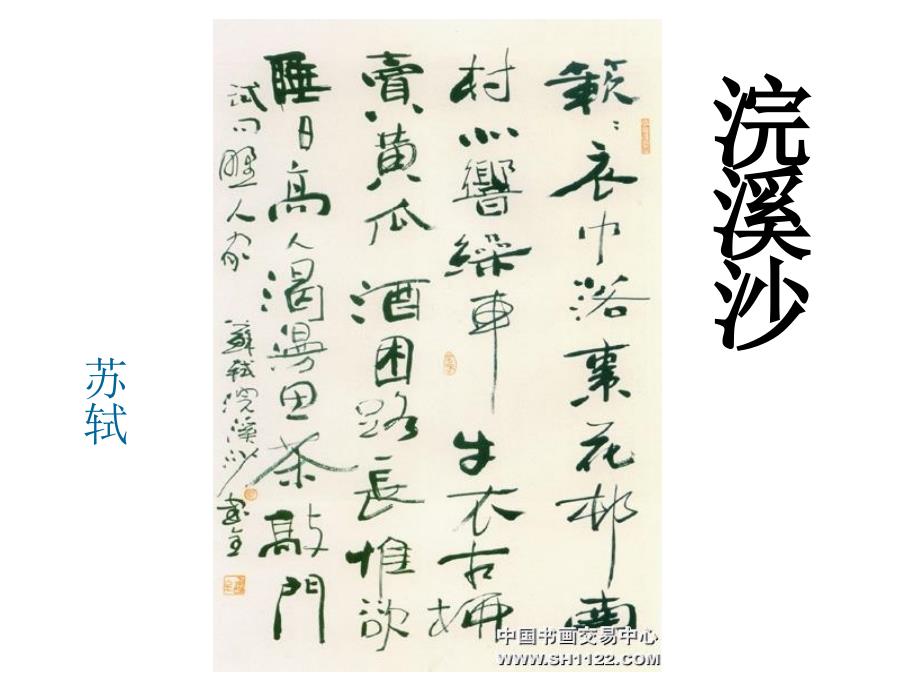 浣溪沙
簌々衣巾落棗花邨南
村北響繰車牛衣古柳
賣黄瓜酒困路長惟欲
睡日高人渴漫思茶敲門
試问野人家 蘇軾浣溪沙
苏轼
中国书画交易中心
WWW.SH1122.COM